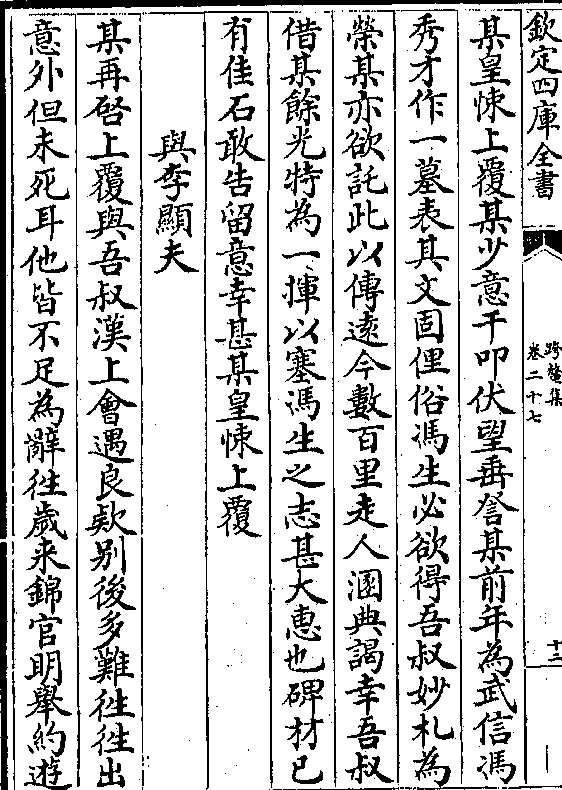 欽定四庫全書
跨鼇集
卷二十七
十二
某皇悚上覆某少意干叩伏望垂詧某前年為武信馮
秀才作一墓表其文固俚俗馮生必欲得吾叔妙札為
榮某亦欲託此以傳遠今數百里走人函典謁幸吾叔
借某餘光特為一揮以塞馮生之志甚大惠也碑材已
有佳石敢告留意幸甚某皇悚上覆
與李顯夫
某再啓上覆與吾叔漢上會遇良欵别後多難徃徃出
意外但未死耳他皆不足為辭徃歲来錦官明舉約遊